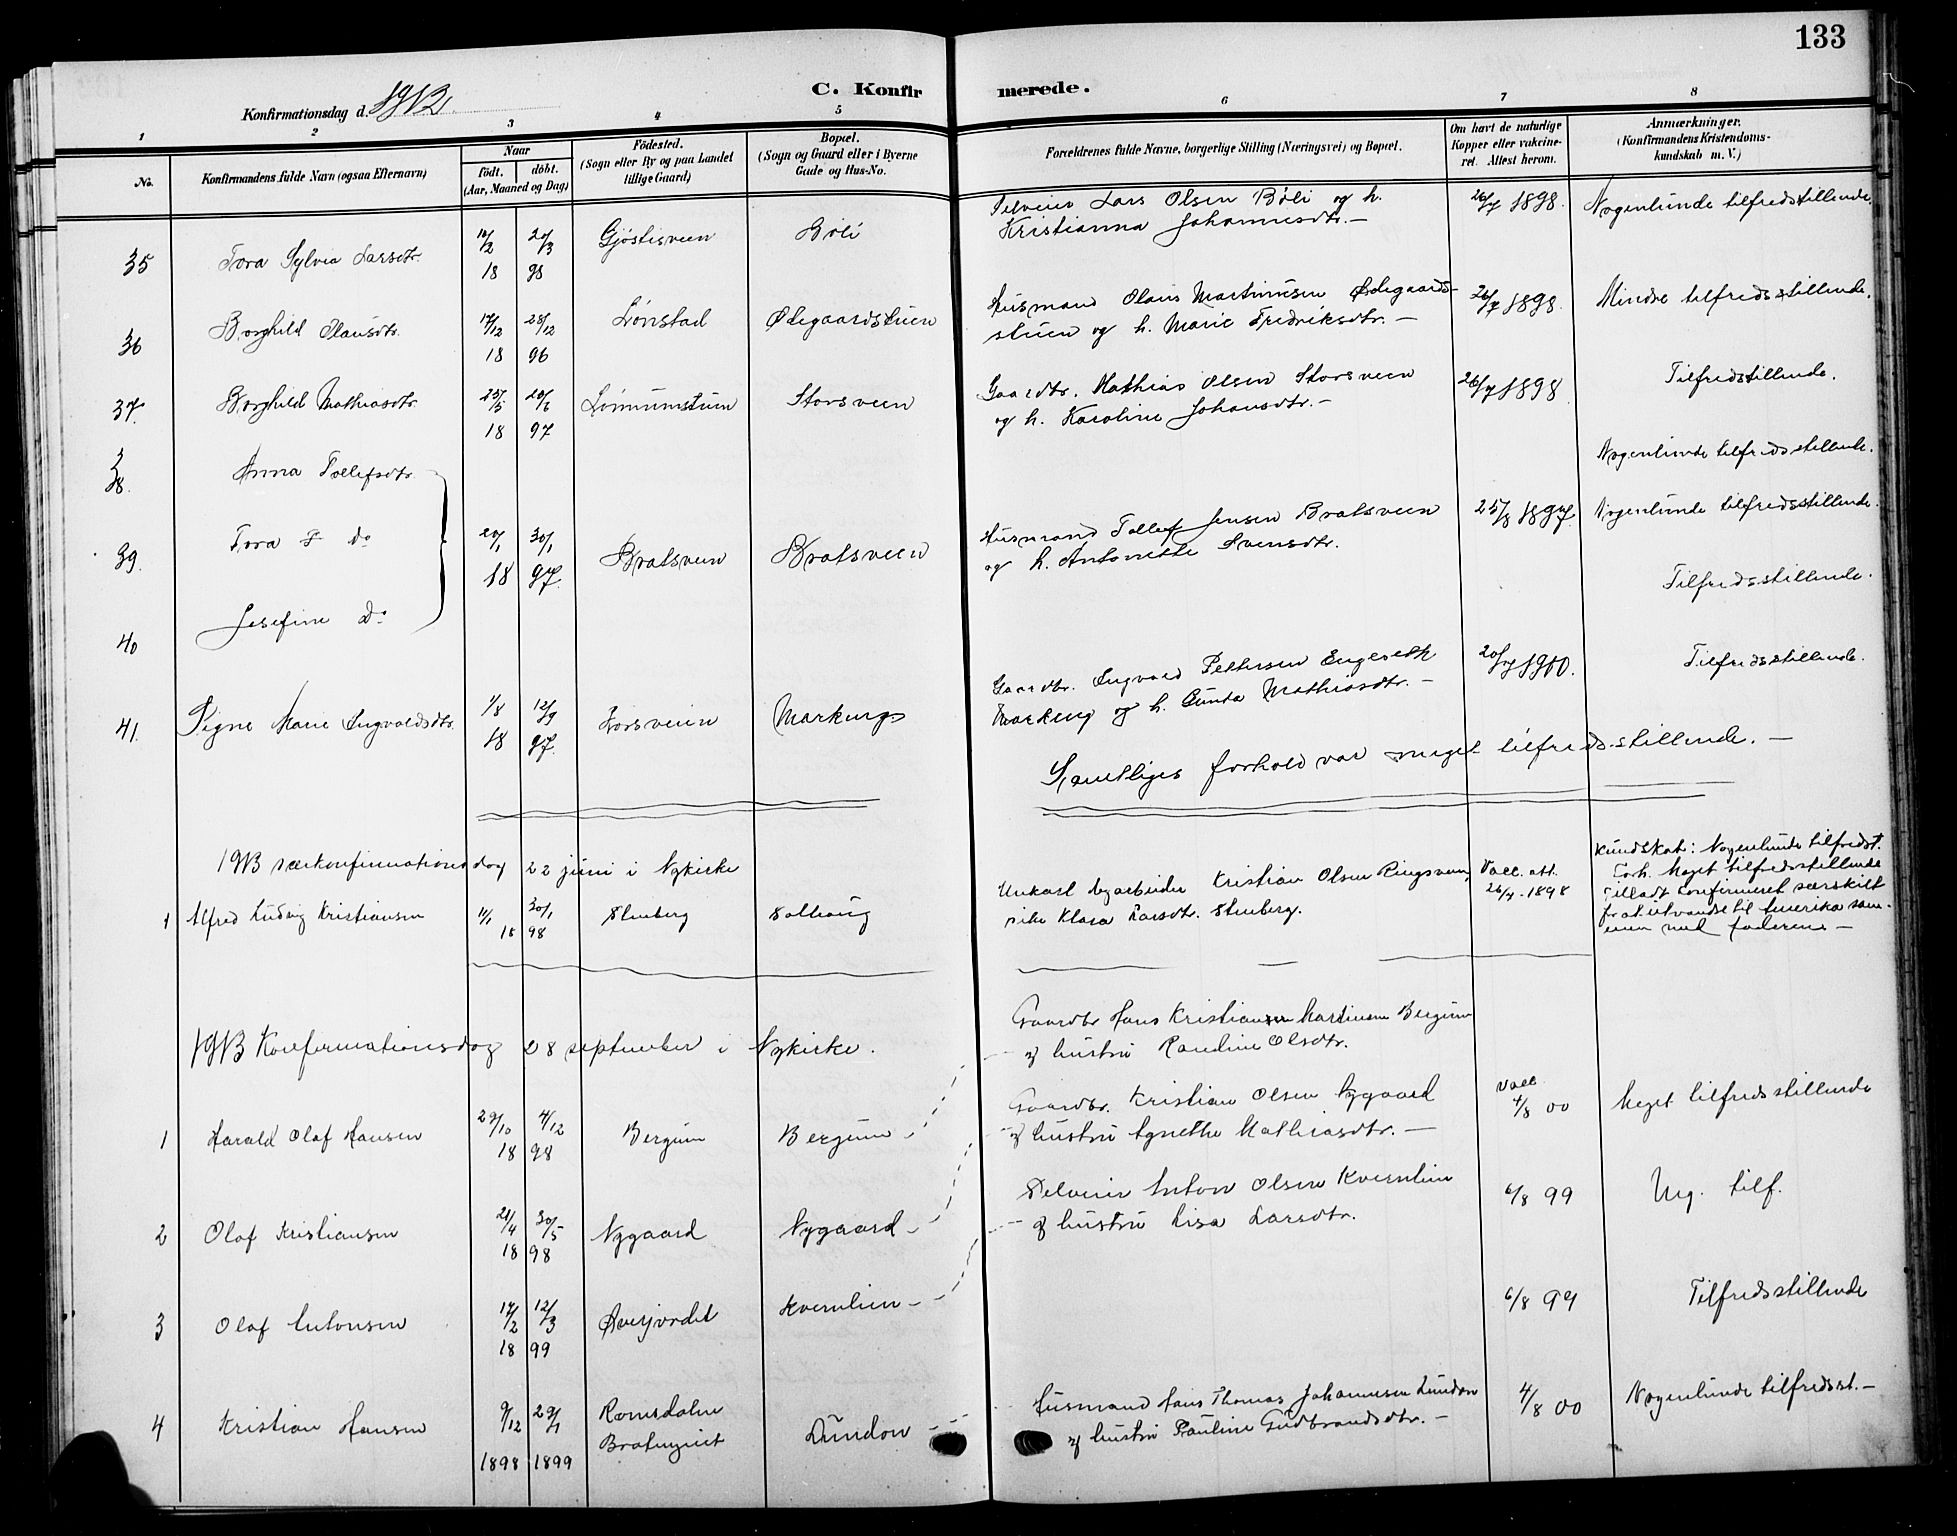 133
C. Konfirmerede.
Konfirmationsdag d. 1913.
1 2 3 4 5 6 7 8
No.
Konfirmandens fulde Navn (ogsaa Efternavn)
Naar
født. døbt.
(Aar, Maaned og Dag)
Fødested.
(Sogn eller By og paa Landet
tillige Gaard)
Bopæl.
(Sogn og Gaard eller i Byerne
Gade og Hus-No.
Forældrenes fulde Navne, borgerlige Stilling (Næringsvei) og Bopæl.
Om havt de naturlige
Kopper eller vakcine-
ret. Attest herom.
Anmærkninger.
(Konfirmandens Kristendoms-
kundskab m. V.)
Selveier Lars Olsen Böli og h. 26/7 1898. Nogenlunde tilfredsstillende.
35 Tora Sylvia Larsdtr. 18 98 Gjøstisveen Böli Kristianna Johannesdtr. –
36 Borghild Olausdtr. 17/12 28/12 Lønstad Ødegaardstuen Husmand Olaus Martinusen Ødegaards- 26/7 1898. Mindre tilfredsstillende.
18 96 stuen og h. Marie Fredriksdtr. –
37. Borghild Mathiasdtr. 25/5 20/6 Lønnumstuen Storsveen Gaardbr. Mathias Olsen Storsveen 26/7 1898 Tilfredstillende.
18 97 og h. Karoline Johansdtr. –
38. Anna Tollefsdtr. Nogenlunde tilfredsstillende.
39. Tora do 20/1 30/1 Bratsveen Bratsveen Husmand Tollef Jensen Bratsveen 25/8 1897. Nogenlunde tilfredsstillende.
18 97. og h. Antonette Svensdtr.
40 Josefine Do Tilfredsstillende.
41. Signe Marie Ingvaldsdtr. 1/8 12/9 Lorsveien Markeng Gaardbr. Ingvald Pettersen Engeseth 20/7 1900. Tilfredsstillende.
18 97. Markeng og h. Gunda Mathiasdtr. –
Samtliges forhold var meget tilfredsstillende. –
1913 særkonfirmationsdag 22 juni i Nykirke
1 Alfred Ludvig Kristiansen 11/1 30/1 Stenberg Solhaug Unkarl dagarbeider Kristian Olsen Ringsveen, Vacc. att.
18 98 pike Klara Larsdtr. Stenberg. 26/7 1898
Kundskab: Nogenlunde tilfredst.
Forh. Meget tilfredsstillende
Tilladt konfirmeret særskilt
for at utvandre til Amerika sam-
men med faderen –
1913 Konfirmationsdag 28 september i Nykirke.
Gaardbr Hans Kristiansen Martinsen Bergum
og hustru Randine Olsdtr.
1 Harald Olaf Hansen 29/10 4/12 Bergum Bergum Vacc. 4/8 00 Meget tilfredsstillende
18 98
Gaardbr. Kristian Olsen Nygaard
og hustru Agnethe Mathiasdtr. –
2 Olaf Kristiansen 21/4 30/5 Nygaard Nygaard 6/8 99 Mg. tilf.
18 98
Selveier Anton Olsen Kvernlien
og hustru Lisa Larsdtr.
3 Olaf Antonsen 17/2 12/3 Kvernlien 6/8 99 Tilfredsstillende
18 99
4 Kristian Hansen 9/12 29/1 Romsdalen Lundon Husmand Hans Thomas Johannesen Lundon 4/8 00 Nogenlunde tilfredsst. –
1898 1899 og hustru Pauline Gudbrandsdtr. –